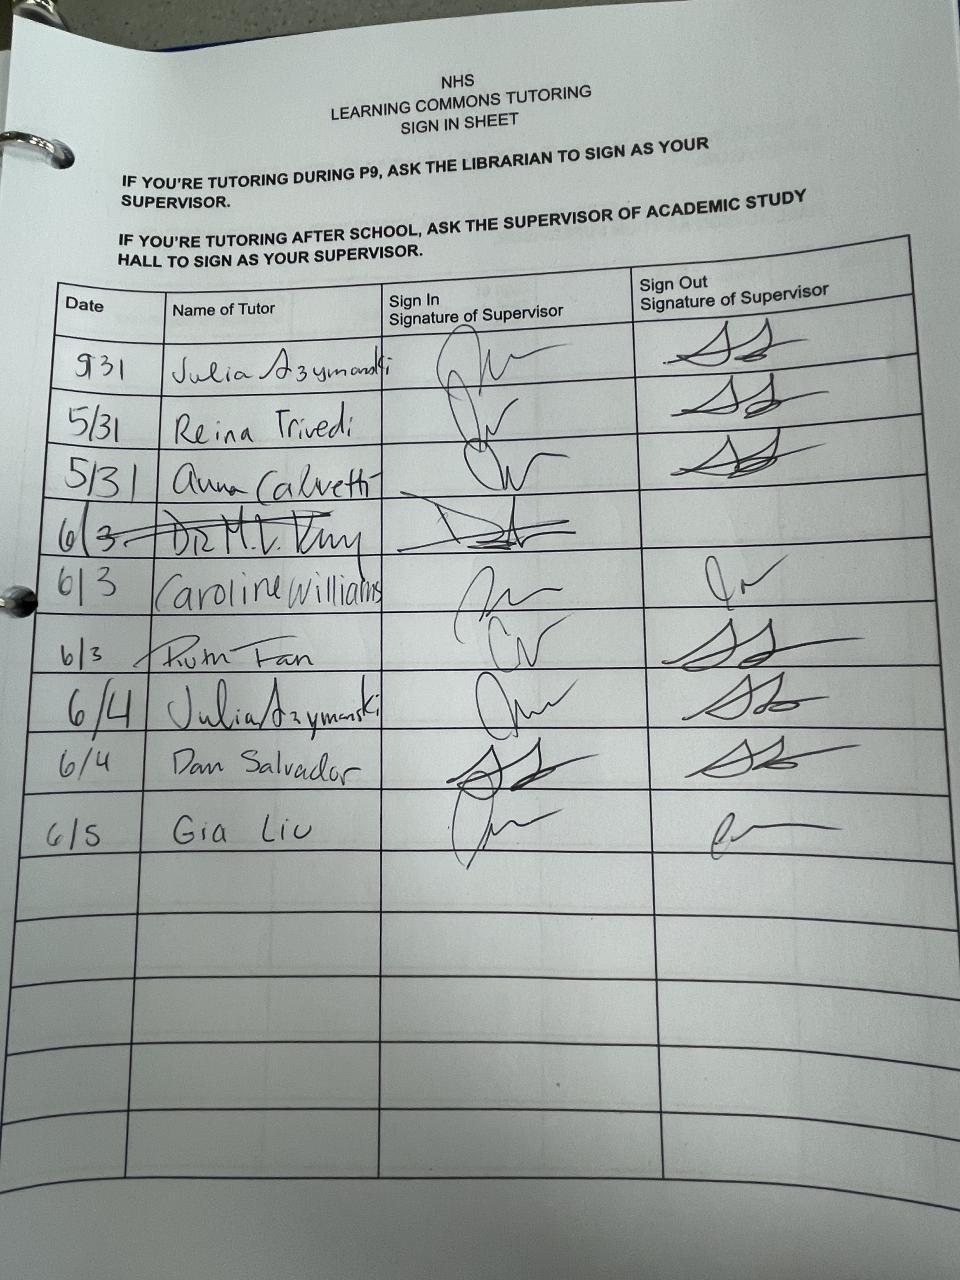 NHS
LEARNING COMMONS TUTORING
SIGN IN SHEET
IF YOU'RE TUTORING DURING P9, ASK THE LIBRARIAN TO SIGN AS YOUR
SUPERVISOR.
IF YOU'RE TUTORING AFTER SCHOOL, ASK THE SUPERVISOR OF ACADEMIC STUDY
HALL TO SIGN AS YOUR SUPERVISOR.
Date Name of Tutor Sign In Signature of Supervisor Sign Out Signature of Supervisor
Julia Szymanski
5/31 Reina Trivedi
5/31 Anna Calvetti
6/3
6/3 Caroline Williams
6/3 Fan
6/4 Julia Szymanski
6/4 Dan Salvador
6/5 Gia Liu